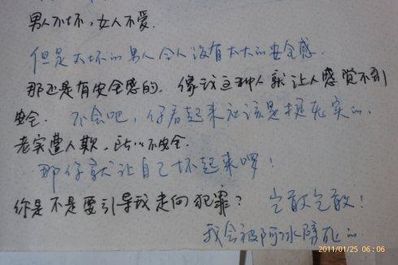 男人不坏，女人不爱。
但是太坏的男人令人没有太大的安全感。
那还是有安全感的，像我这种人就让人感觉不到
安全。 不会吧，你看起来应该是挺老实的。
老实遭人欺，所以不安全。
那你就让自己坏起来啰！
你是不是要引导我走向犯罪？ 岂敢岂敢！
我会被阿冰劈死的
2011/01/25 06:06